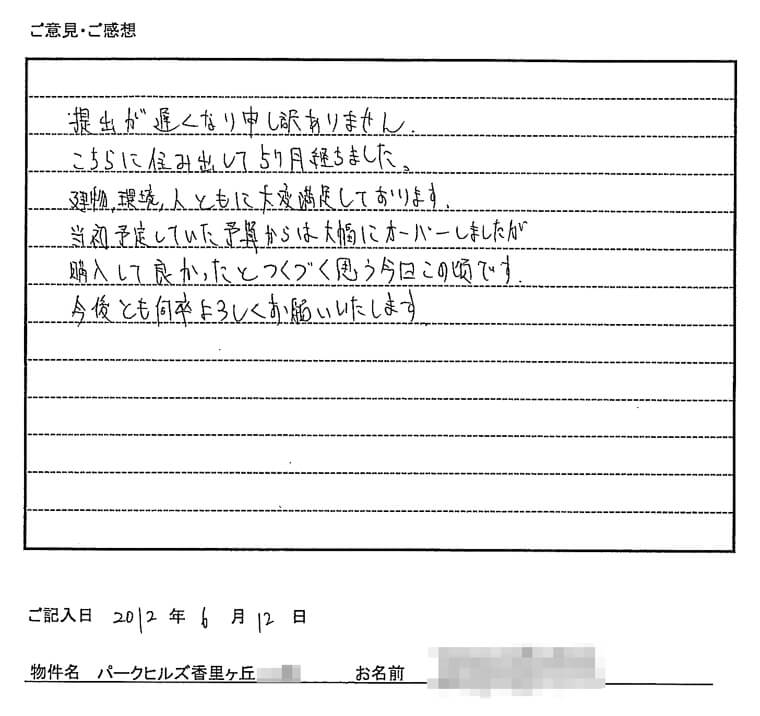 ご意見・ご感想
提出が遅くなり申し訳ありません.
こちらに住み出して5ヶ月経ちました。
建物,環境,人ともに大変満足しております.
当初予定していた予算からは大幅にオーバーしましたが
購入して良かったとつくづく思う今日この頃です.
今後とも何卒よろしくお願いいたします
ご記入日 2012 年 6 月 12 日
物件名 パークヒルズ香里ヶ丘 お名前